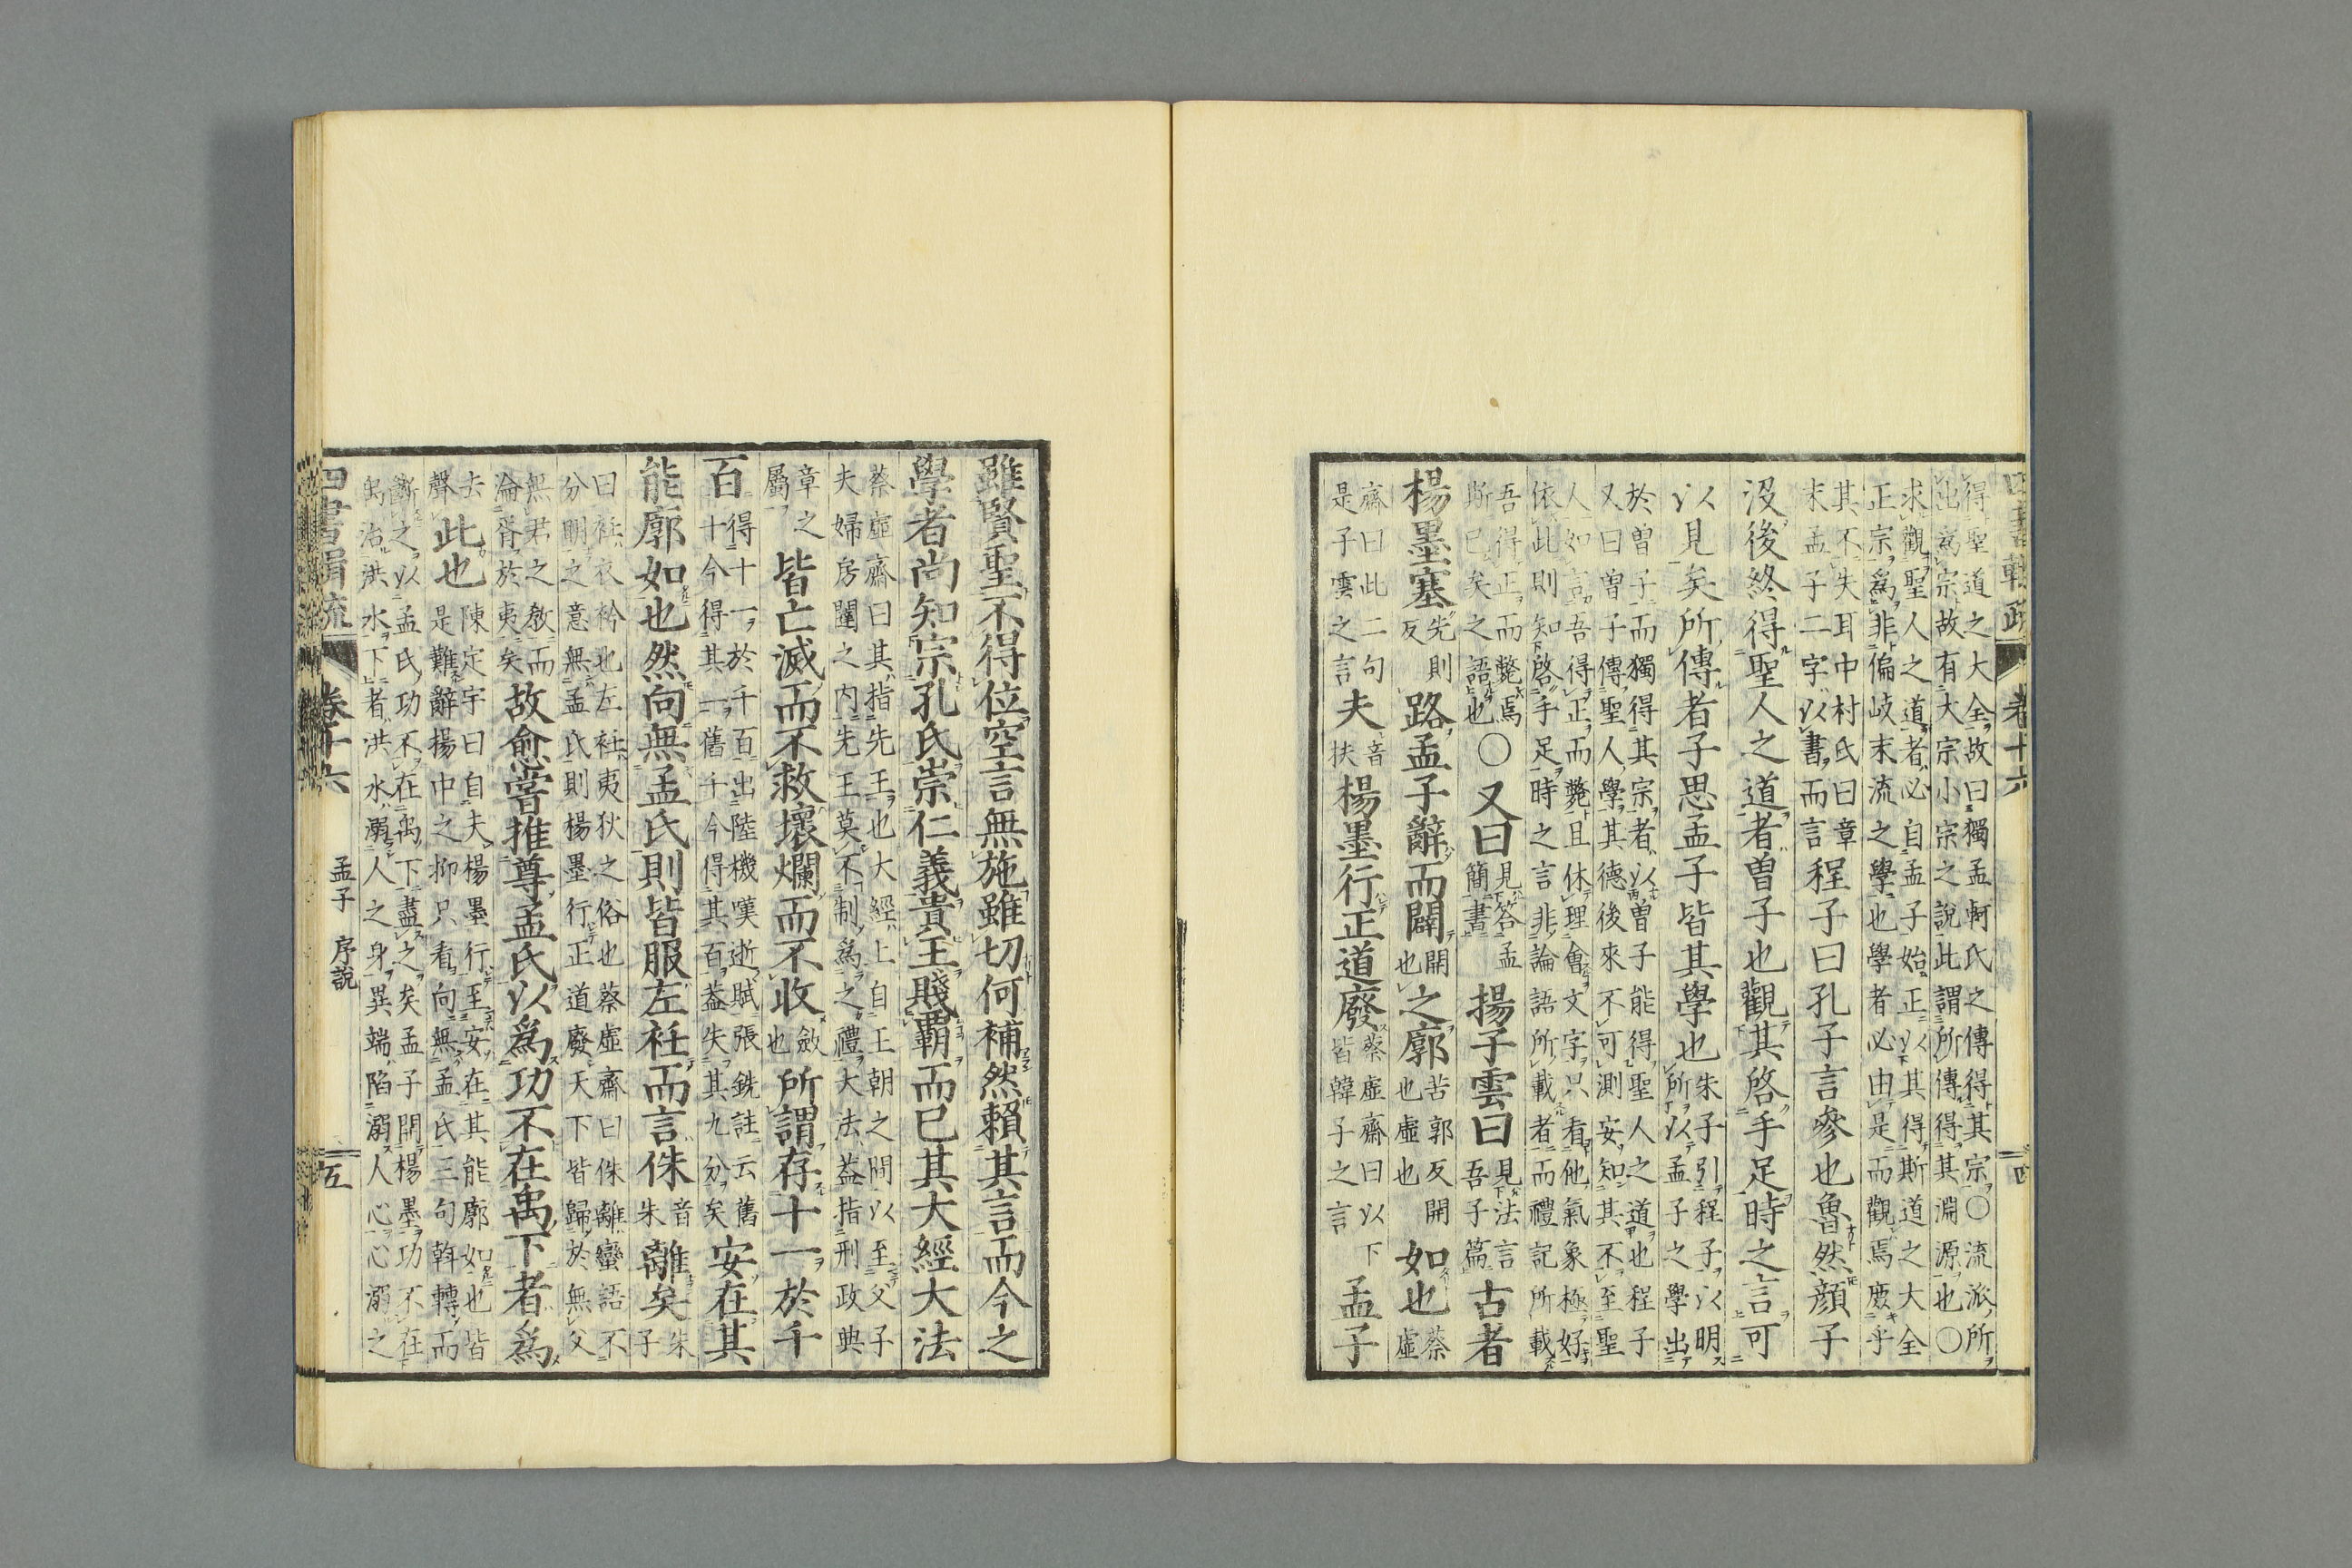 四書輯疏 卷十六 四
得聖道之大全故曰獨孟軻氏之傳得其宗〇流派所
出爲宗故有大宗小宗之說此謂所傳得其淵源也〇
求觀聖人之道者必自孟子始正以其得斯道之大全
正宗爲非偏岐末流之學也學者必由是而觀焉庶乎
其不失耳中村氏曰章
末孟子二字以書而言
程子曰孔子言參也魯然顏子
沒後終得聖人之道者曾子也觀其啓手足時之言可
以見矣所傳者子思孟子皆其學也
朱子引程子以明
所以孟子之學出
於曾子而獨得其宗者以曾子能得聖人之道也程子
又曰曾子傳聖人學其德後來不可測安知其不至聖
人如言吾得正而斃且休理會文字只看他氣象極好
依此則知啓手足時之言非論語所載者而禮記所載
吾得正而斃焉
斯已矣之語也
〇又曰
見答孟
簡書
揚子雲曰
見法言
吾子篇
古者
楊墨塞
先則
反
路孟子辭而闢
開
也
之廓
苦郭反開
也虛也
如也
蔡
虛
齋曰此二句
是子雲之言
夫
音
扶
楊墨行正道廢
蔡虛齋曰以下
皆韓子之言
孟子
雖賢聖不得位空言無施雖切何補然賴其言而今之
學者尚知宗孔氏崇仁義貴王賤霸而已其大經大法
蔡虛齋曰其指先王也大經上自王朝之間以至父子
夫婦房闥之內先王莫不制爲之禮大法蓋指刑政典
章之
屬
皆亡滅而不救壞爛而不收
斂
也
所謂存十一於千
百
得十一於千百出陸機嘆逝賦張銑註云舊
十今得其一舊千今得其百蓋失其九分矣
安在其
能廓如也然向無孟氏則皆服左衽而言侏
音
朱
離矣
朱
子
曰衽衣衿也左衽夷狄之俗也蔡虛齋曰侏離蠻語不
分明之意無孟氏則楊墨行正道廢天下皆歸於無父
無君之教而
淪胥於夷矣
故愈嘗推尊孟氏以爲功不在禹下者爲
去
聲
此也
陳定宇曰自夫楊墨行至安在其能廓如也皆
是難辭揚中之抑只看向無孟氏三句斡轉而
斷之以孟氏功不在禹下盡之矣孟子闢楊墨功不在
禹治洪水下者洪水溺人之身異端陷溺人心心溺之
四書輯疏 卷十六 孟子 序說 五